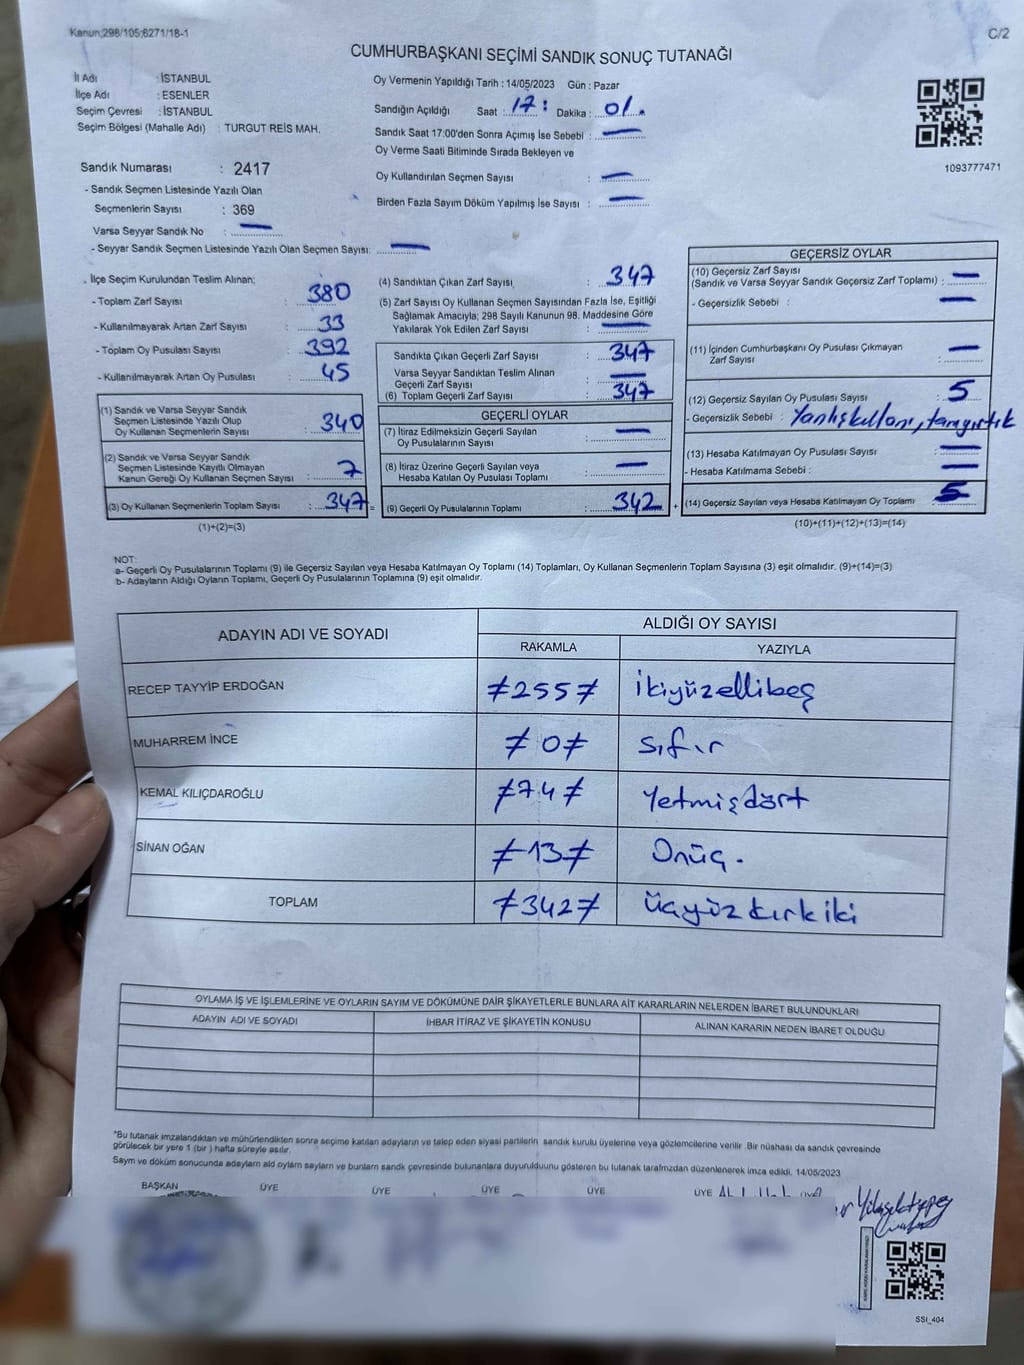 Kanun;298/105;6271/18-1
C/2
CUMHURBAŞKANI SEÇİMİ SANDIK SONUÇ TUTANAĞI
İl Adı : İSTANBUL
İlçe Adı : ESENLER
Seçim Çevresi : İSTANBUL
Seçim Bölgesi (Mahalle Adı) : TURGUT REİS MAH.
Oy Vermenin Yapıldığı Tarih : 14/05/2023 Gün : Pazar
Sandığın Açıldığı Saat : 17: Dakika : 01.
Sandık Saat 17:00'den Sonra Açımış İse Sebebi : —
Oy Verme Saati Bitiminde Sırada Bekleyen ve
Oy Kullandırılan Seçmen Sayısı : —
Birden Fazla Sayım Döküm Yapılmış İse Sayısı : —
1093777471
Sandık Numarası : 2417
- Sandık Seçmen Listesinde Yazılı Olan
Seçmenlerin Sayısı : 369
Varsa Seyyar Sandık No : —
- Seyyar Sandık Seçmen Listesinde Yazılı Olan Seçmen Sayısı: —
İlçe Seçim Kurulundan Teslim Alınan;
- Toplam Zarf Sayısı : 380
- Kullanılmayarak Artan Zarf Sayısı : 33
- Toplam Oy Pusulası Sayısı : 392
- Kullanılmayarak Artan Oy Pusulası : 45
(1) Sandık ve Varsa Seyyar Sandık
Seçmen Listesinde Yazılı Olup
Oy Kullanan Seçmenlerin Sayısı : 340
(2) Sandık ve Varsa Seyyar Sandık
Seçmen Listesinde Kayıtlı Olmayan
Kanun Gereği Oy Kullanan Seçmen Sayısı : 7
(3) Oy Kullanan Seçmenlerin Toplam Sayısı : 347 =
(1)+(2)=(3)
(4) Sandıktan Çıkan Zarf Sayısı : 347
(5) Zarf Sayısı Oy Kullanan Seçmen Sayısından Fazla İse, Eşitliği
Sağlamak Amacıyla; 298 Sayılı Kanunun 98. Maddesine Göre
Yakılarak Yok Edilen Zarf Sayısı : —
Sandıkta Çıkan Geçerli Zarf Sayısı : 347
Varsa Seyyar Sandıktan Teslim Alınan
Geçerli Zarf Sayısı : —
(6) Toplam Geçerli Zarf Sayısı : 347
GEÇERLİ OYLAR
(7) İtiraz Edilmeksizin Geçerli Sayılan
Oy Pusulalarının Sayısı : —
(8) İtiraz Üzerine Geçerli Sayılan veya
Hesaba Katılan Oy Pusulası Toplamı : —
(9) Geçerli Oy Pusulalarının Toplamı : 342 +
GEÇERSİZ OYLAR
(10) Geçersiz Zarf Sayısı
(Sandık ve Varsa Seyyar Sandık Geçersiz Zarf Toplamı) : —
- Geçersizlik Sebebi : —
(11) İçinden Cumhurbaşkanı Oy Pusulası Çıkmayan
Zarf Sayısı : —
(12) Geçersiz Sayılan Oy Pusulası Sayısı : 5
- Geçersizlik Sebebi : Yanlış kullanı,
(13) Hesaba Katılmayan Oy Pusulası Sayısı : —
- Hesaba Katılmama Sebebi : —
(14) Geçersiz Sayılan veya Hesaba Katılmayan Oy Toplamı : 5
(10)+(11)+(12)+(13)=(14)
NOT:
a- Geçerli Oy Pusulalarının Toplamı (9) ile Geçersiz Sayılan veya Hesaba Katılmayan Oy Toplamı (14) Toplamları, Oy Kullanan Seçmenlerin Toplam Sayısına (3) eşit olmalıdır. (9)+(14)=(3)
b- Adayların Aldığı Oyların Toplamı, Geçerli Oy Pusulalarının Toplamına (9) eşit olmalıdır.
ADAYIN ADI VE SOYADI
ALDIĞI OY SAYISI
RAKAMLA YAZIYLA
RECEP TAYYİP ERDOĞAN ≠255≠ ikiyüzellibeş
MUHARREM İNCE ≠0≠ sıfır
KEMAL KILIÇDAROĞLU ≠74≠ Yetmişdört
SİNAN OĞAN ≠13≠ Onüç.
TOPLAM ≠342≠ üçyüzkırkiki
OYLAMA İŞ VE İŞLEMLERİNE VE OYLARIN SAYIM VE DÖKÜMÜNE DAİR ŞİKAYETLERLE BUNLARA AİT KARARLARIN NELERDEN İBARET BULUNDUKLARI
ADAYIN ADI VE SOYADI İHBAR İTİRAZ VE ŞİKAYETİN KONUSU ALINAN KARARIN NEDEN İBARET OLDUĞU
*Bu tutanak imzalandıktan ve mühürlendikten sonra seçime katılan adayların ve talep eden siyasi partilerin sandık kurulu üyelerine veya gözlemcilerine verilir .Bir nüshası da sandık çevresinde
görülecek bir yere 1 (bir ) hafta süreyle asılır.
Sayım ve döküm sonucunda adayların ald oyların sayların ve bunların sandık çevresinde bulunanlara duyurulduunu gösteren bu tutanak tarafmzdan düzenlenerek imza edildi. 14/05/2023
BAŞKAN ÜYE ÜYE ÜYE ÜYE ÜYE
SSI_404